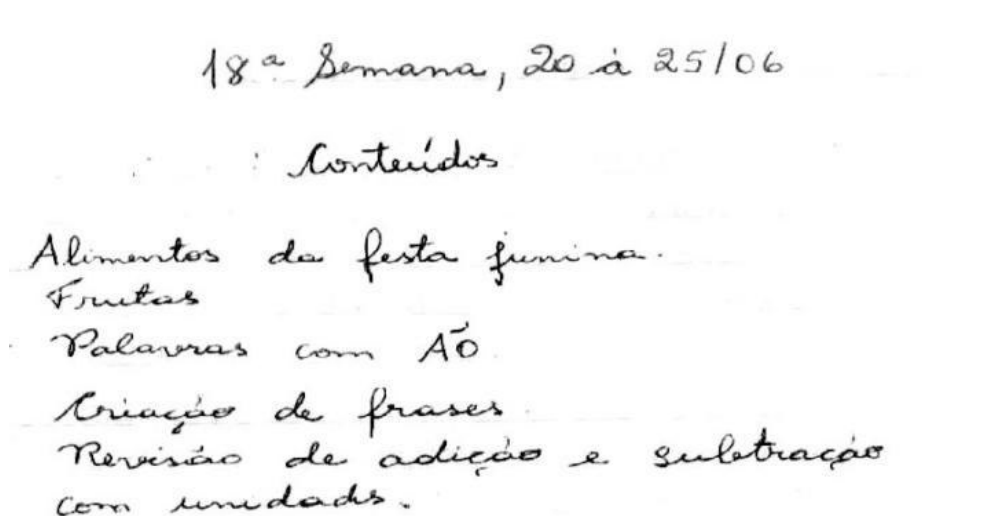 18ª Semana, 20 à 25/06
Conteúdos
Alimentos da festa junina.
Frutas
Palavras com ÃO
Criação de frases
Revisão de adição e subtração
com unidads.